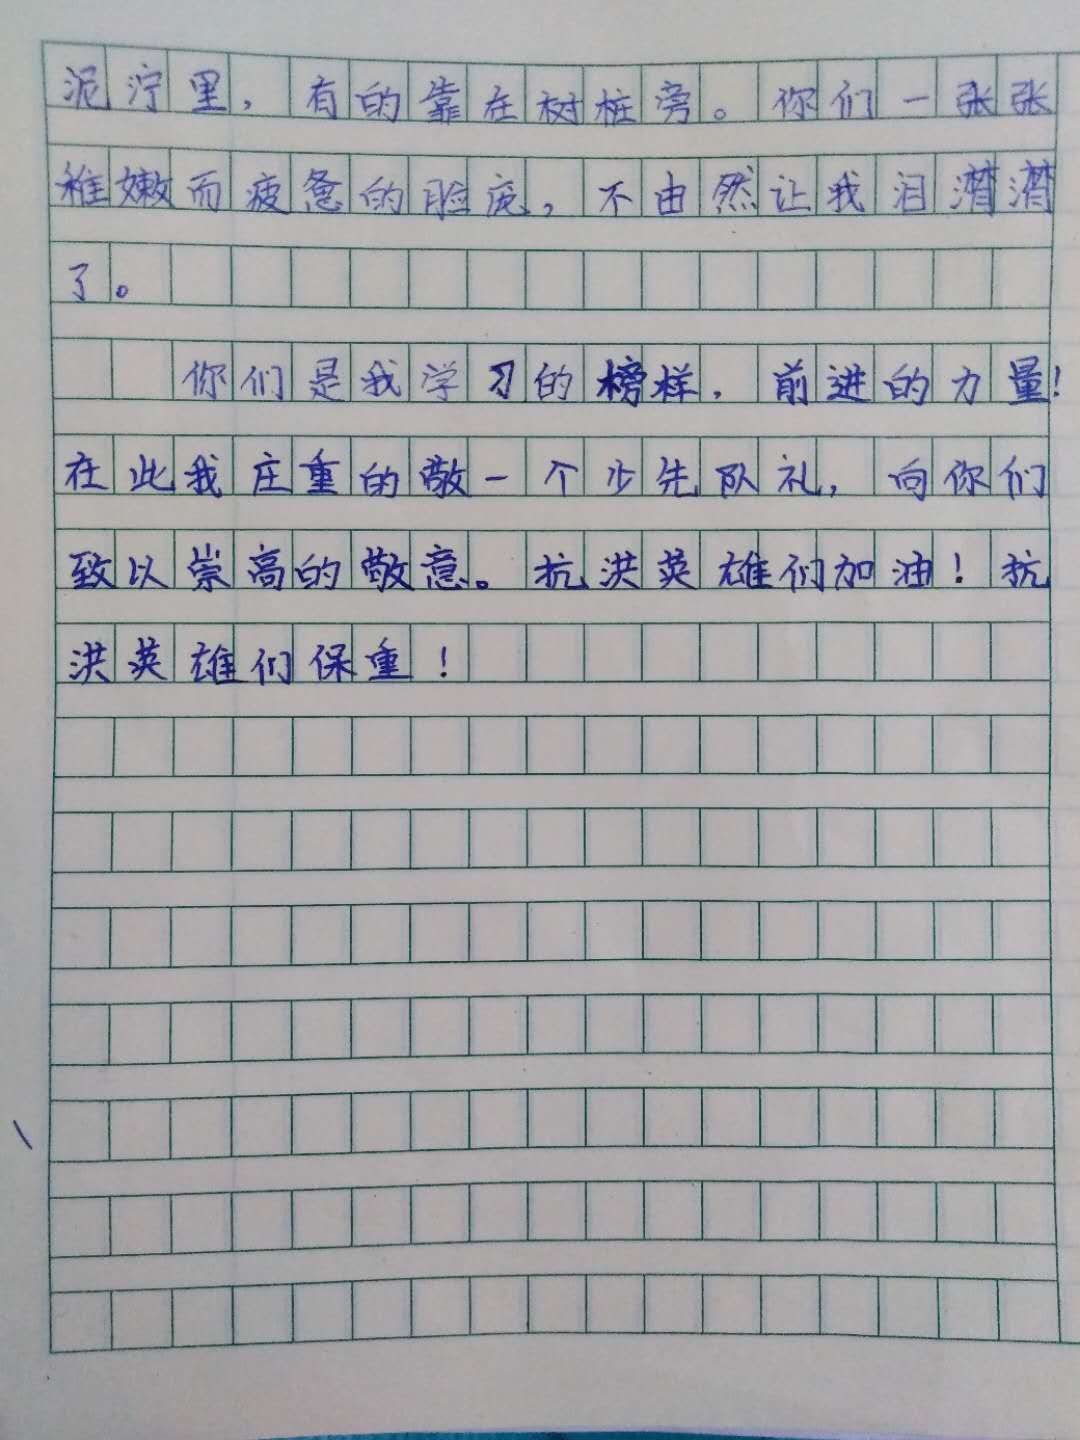 泥泞里，有的靠在树桩旁。你们一张张
稚嫩而疲惫的脸庞，不由然让我泪潸潸
了。
你们是我学习的榜样，前进的力量！
在此我庄重的敬一个少先队礼，向你们
致以崇高的敬意。抗洪英雄们加油！抗
洪英雄们保重！